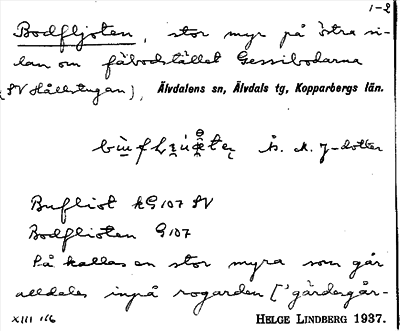 1-2
Bodfljoten, stor myr på östra si-
dan om fäbodstället Gessibodarna
(SV Hållstugan), Älvdalens sn, Älvdals tg, Kopparbergs län.
Å. M. J-dotter
Buflist kG 107 SV
Bodflisten G 107
Så kallas en stor myra som går
alldeles inpå rogarden ['gärdesgår-
XIII 1/6 HELGE LINDBERG 1937.